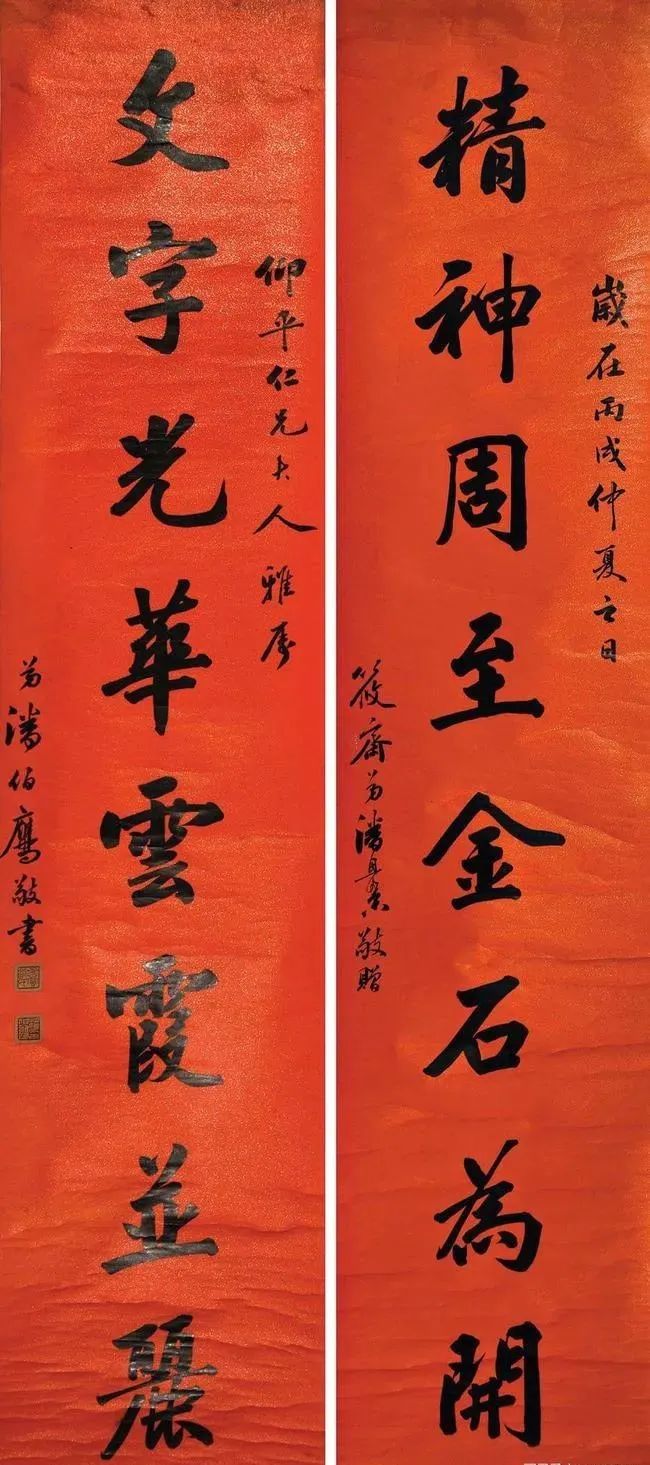 歲在丙戌仲夏之日
精神周至金石為開
筱齋弟潘敬贈
仰平仁兄大人雅屬
文字光華雲霞並麗
弟潘伯鷹敬書